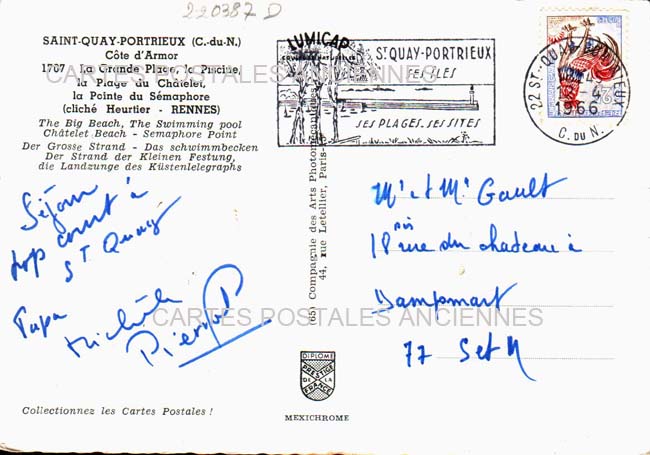 220387 D
SAINT-QUAY-PORTRIEUX (C.-du-N.)
Côte d'Armor
1707 - La Grande Plage, la Piscine,
la Plage du Châtelet,
la Pointe du Sémaphore
(cliché Heurtier - RENNES)
The Big Beach, The Swimming pool
Châtelet Beach - Semaphore Point
Der Grosse Strand - Das schwimmbecken
Der Strand der Kleinen Festung,
die Landzunge des Küstenlelegraphs
LUMICAP
COULEURS NATURELLES
ST QUAY-PORTRIEUX
SES ILES
SES PLAGES. SES SITES
22 ST-QUAY-PORTRIEUX
-4
1966
C. DU N.
CARTES POSTALES ANCIENNES
Séjour
trop court à
ST Quay
Papa
Michèle
Pierrot
(65) Compagnie des Arts Photomécaniques
44, rue Letellier, Paris-
Mr et Me Gault
18 bis rue du chateau à
Dampmart
77 S et M
CARTES POSTALES ANCIENNES
DIPLOME
PRESTIGE
DE LA
FRANCE
MEXICHROME
Collectionnez les Cartes Postales !